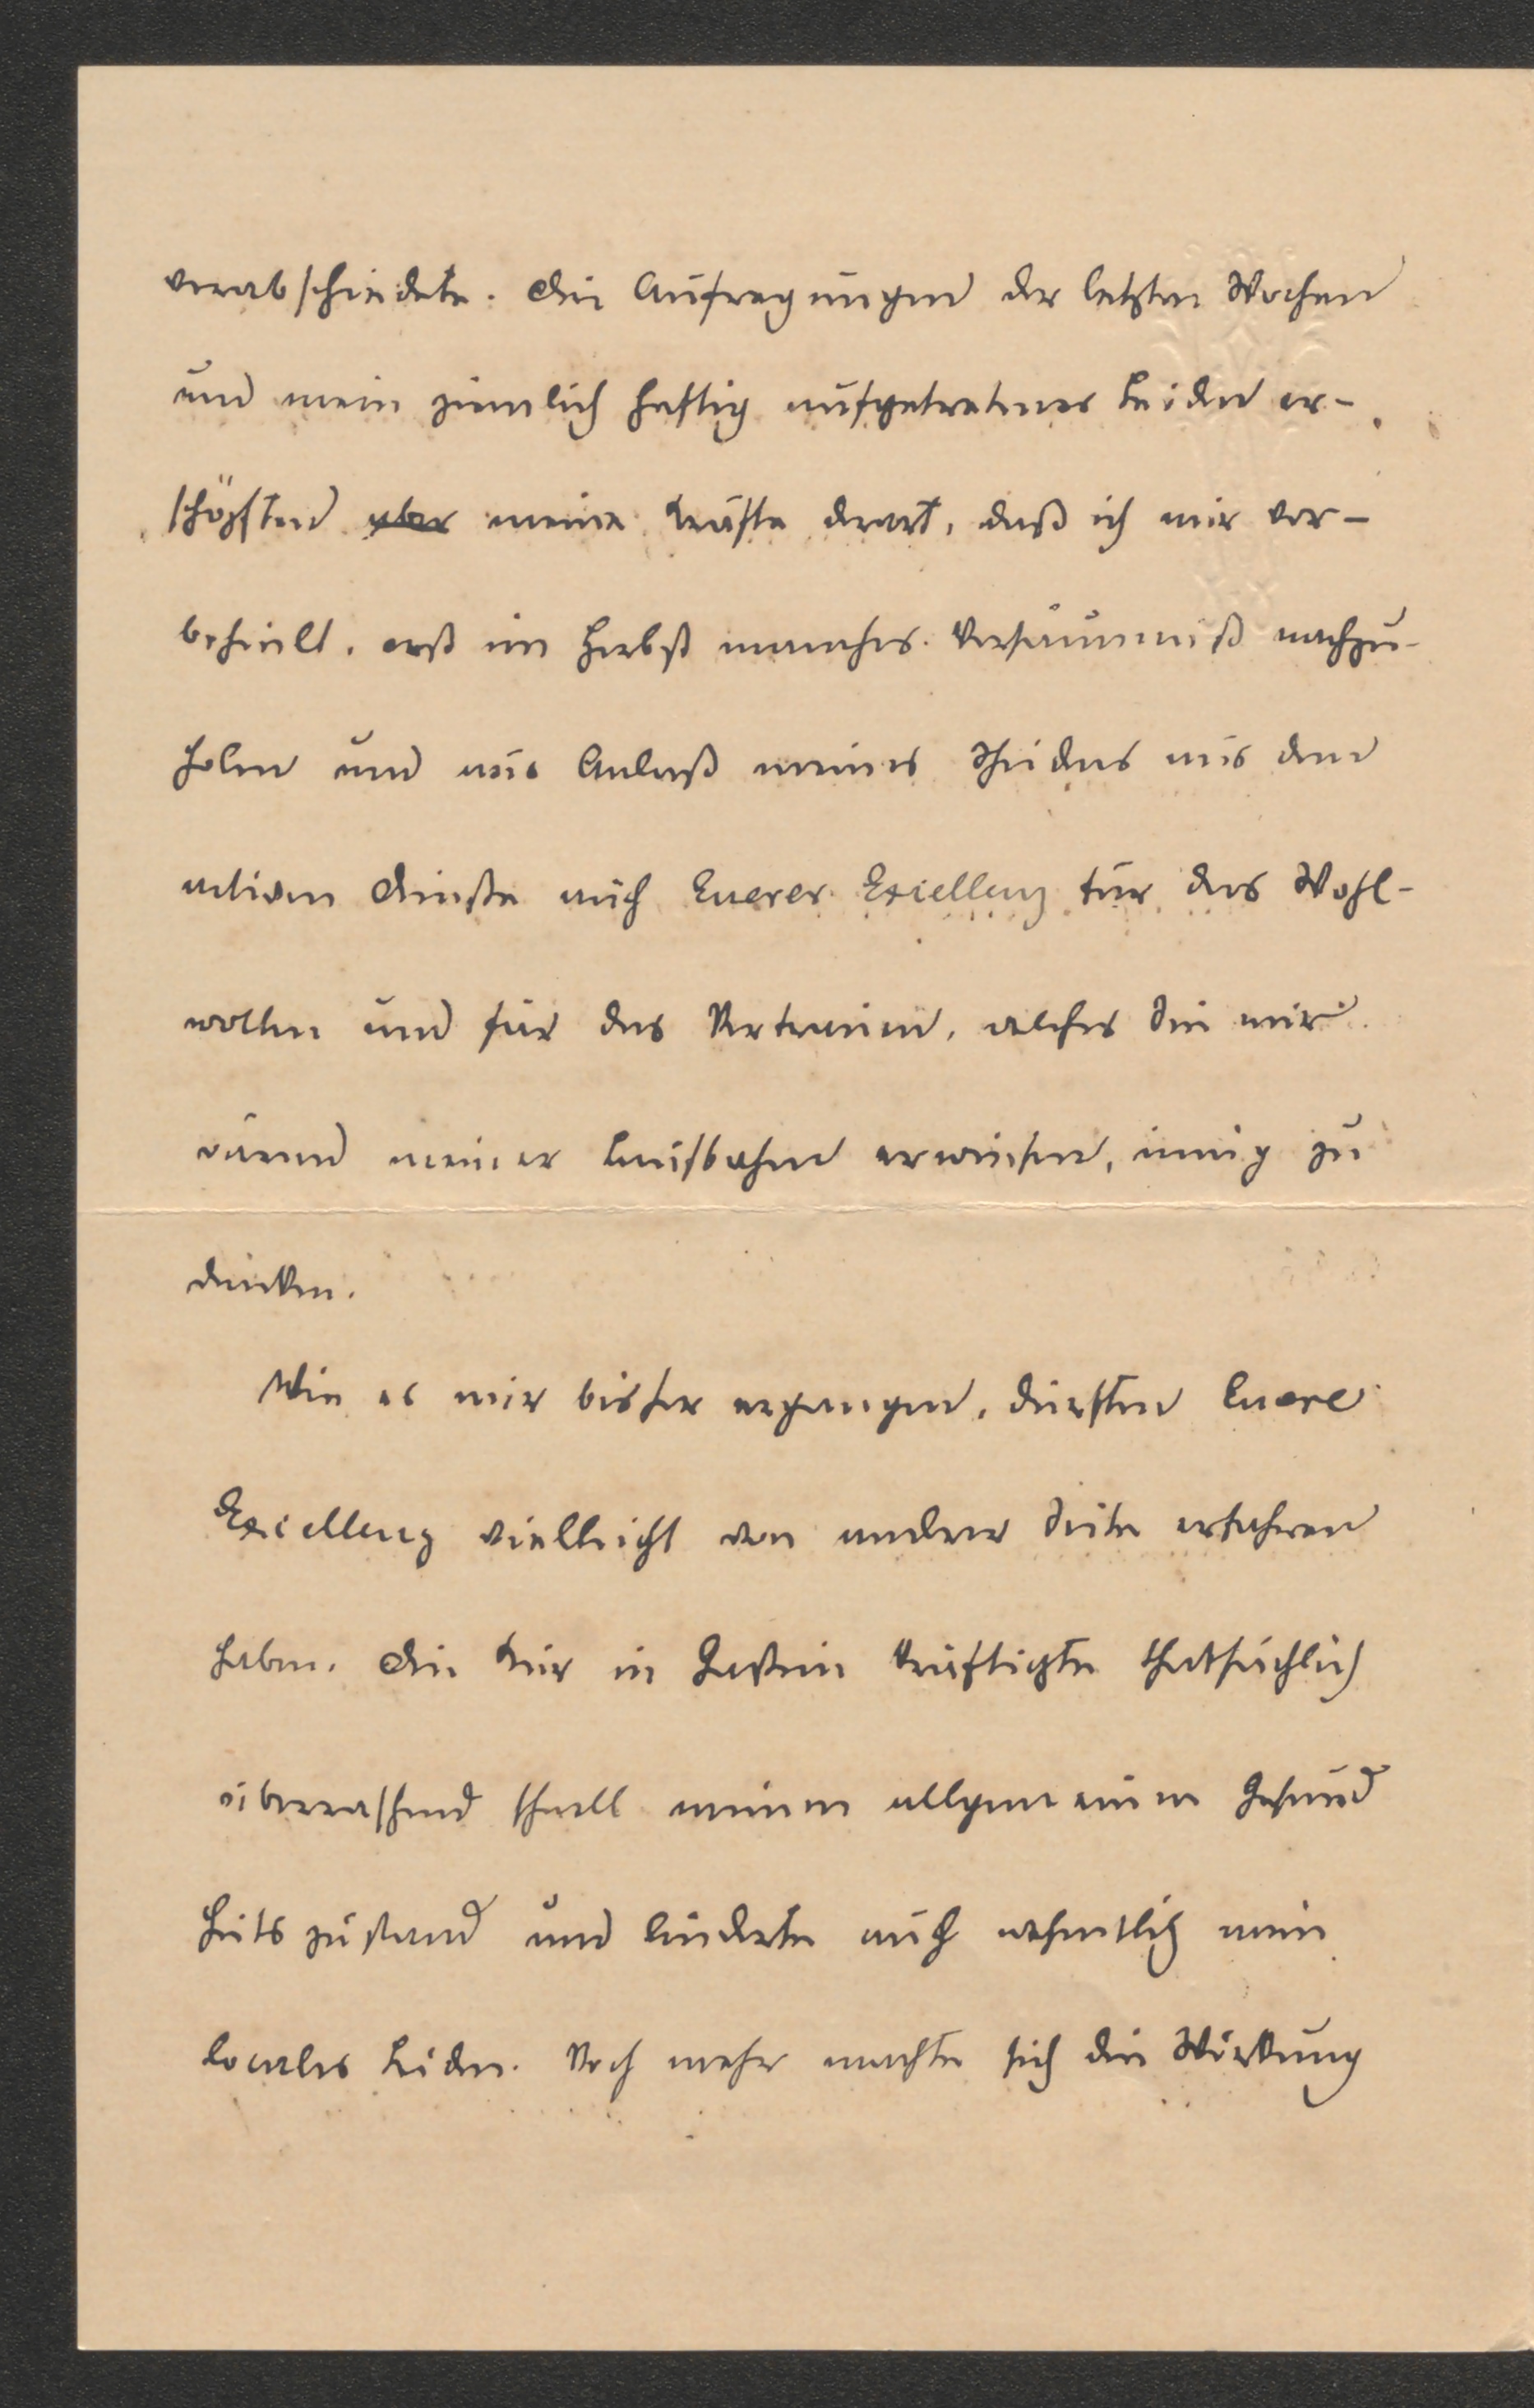 verabschiedete. Die Aufregungen der letzten Wochen
und mein ziemlich heftig aufgetretenes Leiden er-
schöpften aber meine Kräfte derart, daß ich mir vor-
behielt, erst im Herbst manches Versäumniß nachzu-
holen und aus Anlaß meines Scheidens aus dem
activen Dienste auch Euerer Excellenz für das Wohl-
wollen und für das Vertrauen, welches Sie mir
wärend meiner Laufbahn erwiesen, innig zu
danken.
Wie es mir bisher ergangen, dürften Euere
Excellenz vielleicht von anderer Seite erfahren
haben. Die Kur in Gastein kräftigte thatsächlich
überraschend schnell meinen allgemeinen Gesund
heitszustand und linderte auch wesentlich mein
locales Leiden. Noch mehr machte sich die Wirkung